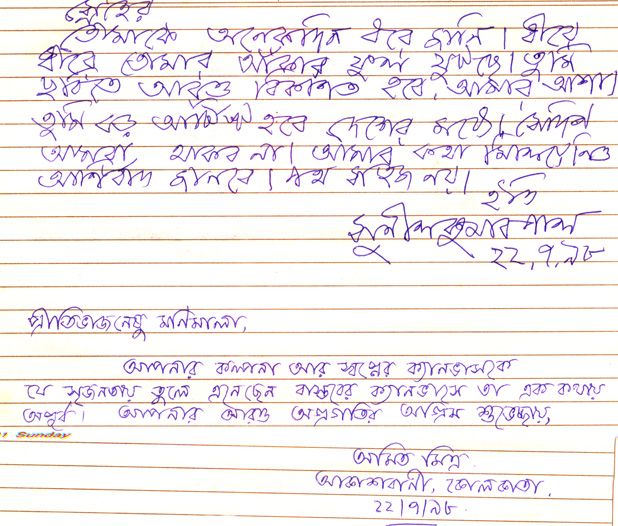 স্নেহের
তোমাকে অনেকদিন ধরে জানি। ধীরে
ধীরে তোমার আঁকার ফুল ফুটছে। তুমি
ছবিতে আরও বিকশিত হবে, আমার আশা।
তুমি বড় আর্টিষ্ট হবে দেশের মধ্যে। সেদিন
আমরা থাকব না। আমার কথা মিলিয়ে নিও
আশির্বাদ জানবে। পথ সহজ নয়।
ইতি
সুনীলকুমার পাল
২২,৭,৯৮
প্রীতিভাজনেষু মনিমালা,
আপনার কল্পনা আর স্বপ্নের ক্যানভাসকে
যে সৃজনতায় তুলে এনেছেন বাস্তবের ক্যানভাসে তা এক কথায়
অপূর্ব। আপনার আরও অগ্রগতির অগ্রিম শুভেচ্ছায়,
Sunday
অমিত মিত্র
আকাশবানী, কোলকাতা.
২২/৭/৯৮